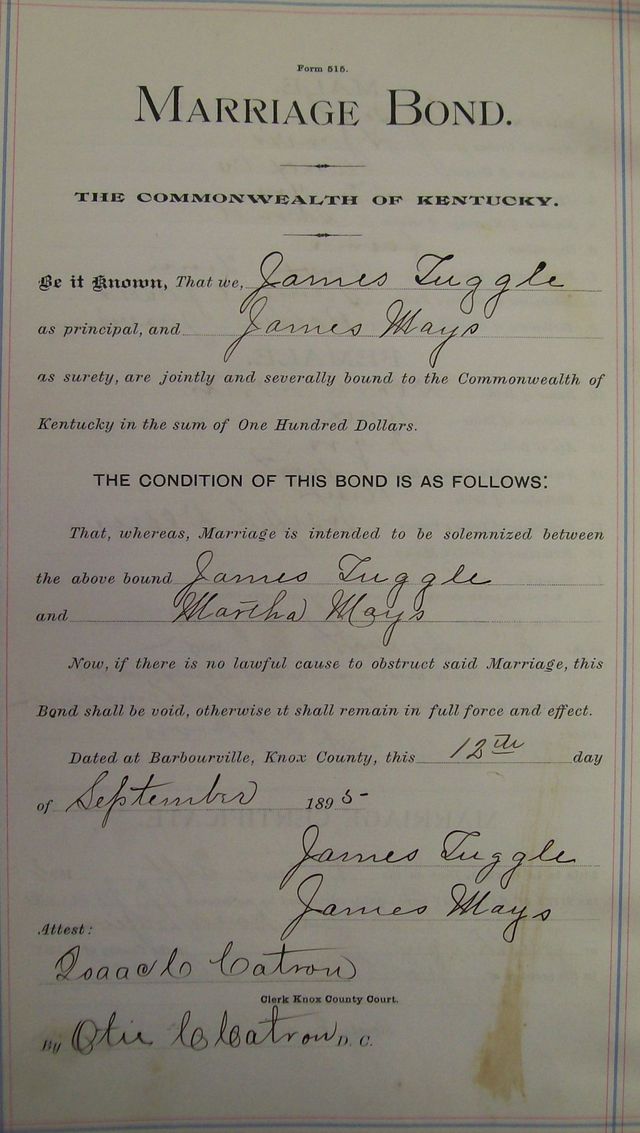 Form 515.
MARRIAGE BOND.
THE COMMONWEALTH OF KENTUCKY.
Be it Known, That we, James Tuggle
as principal, and James Mays
as surety, are jointly and severally bound to the Commonwealth of
Kentucky in the sum of One Hundred Dollars.
THE CONDITION OF THIS BOND IS AS FOLLOWS:
That, whereas, Marriage is intended to be solemnized between
the above bound James Tuggle
and Martha Mays
Now, if there is no lawful cause to obstruct said Marriage, this
Bond shall be void, otherwise it shall remain in full force and effect.
Dated at Barbourville, Knox County, this 12th day
of September 1895
James Tuggle
James Mays
Attest:
Isaac C Catron
Clerk Knox County Court.
By Otie C Catron D. C.